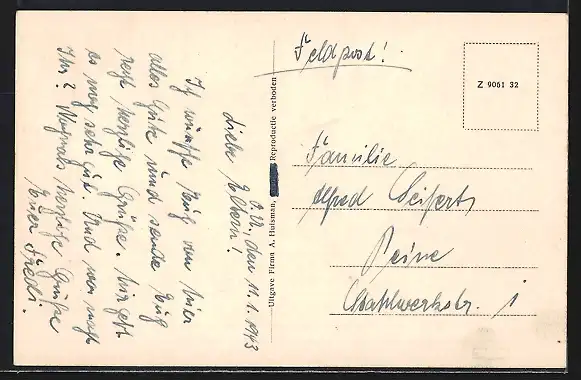 O.U., den 11.1.1943
Liebe Eltern!
Ich wünsche Euch von hier
alles Gute und sende Euch
recht herzliche Grüße. Mir geht
es noch sehr gut. Und was macht
Ihr? Nochmals herzliche Grüße
Euer Friedi.
Uitgave Firma A. Huisman, Reproductie verboden
Feldpost!
Z 9061 32
Familie
Alfred Seifert
Peine
Stahlwerkstr. 1